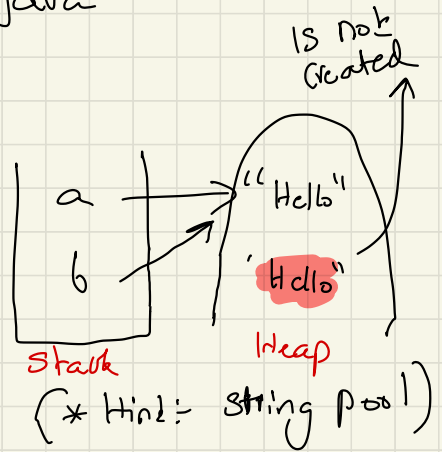 Java
Is not
created
a
"Hello"
b
"Hello"
Stack
Heap
(* Hint:- string pool)